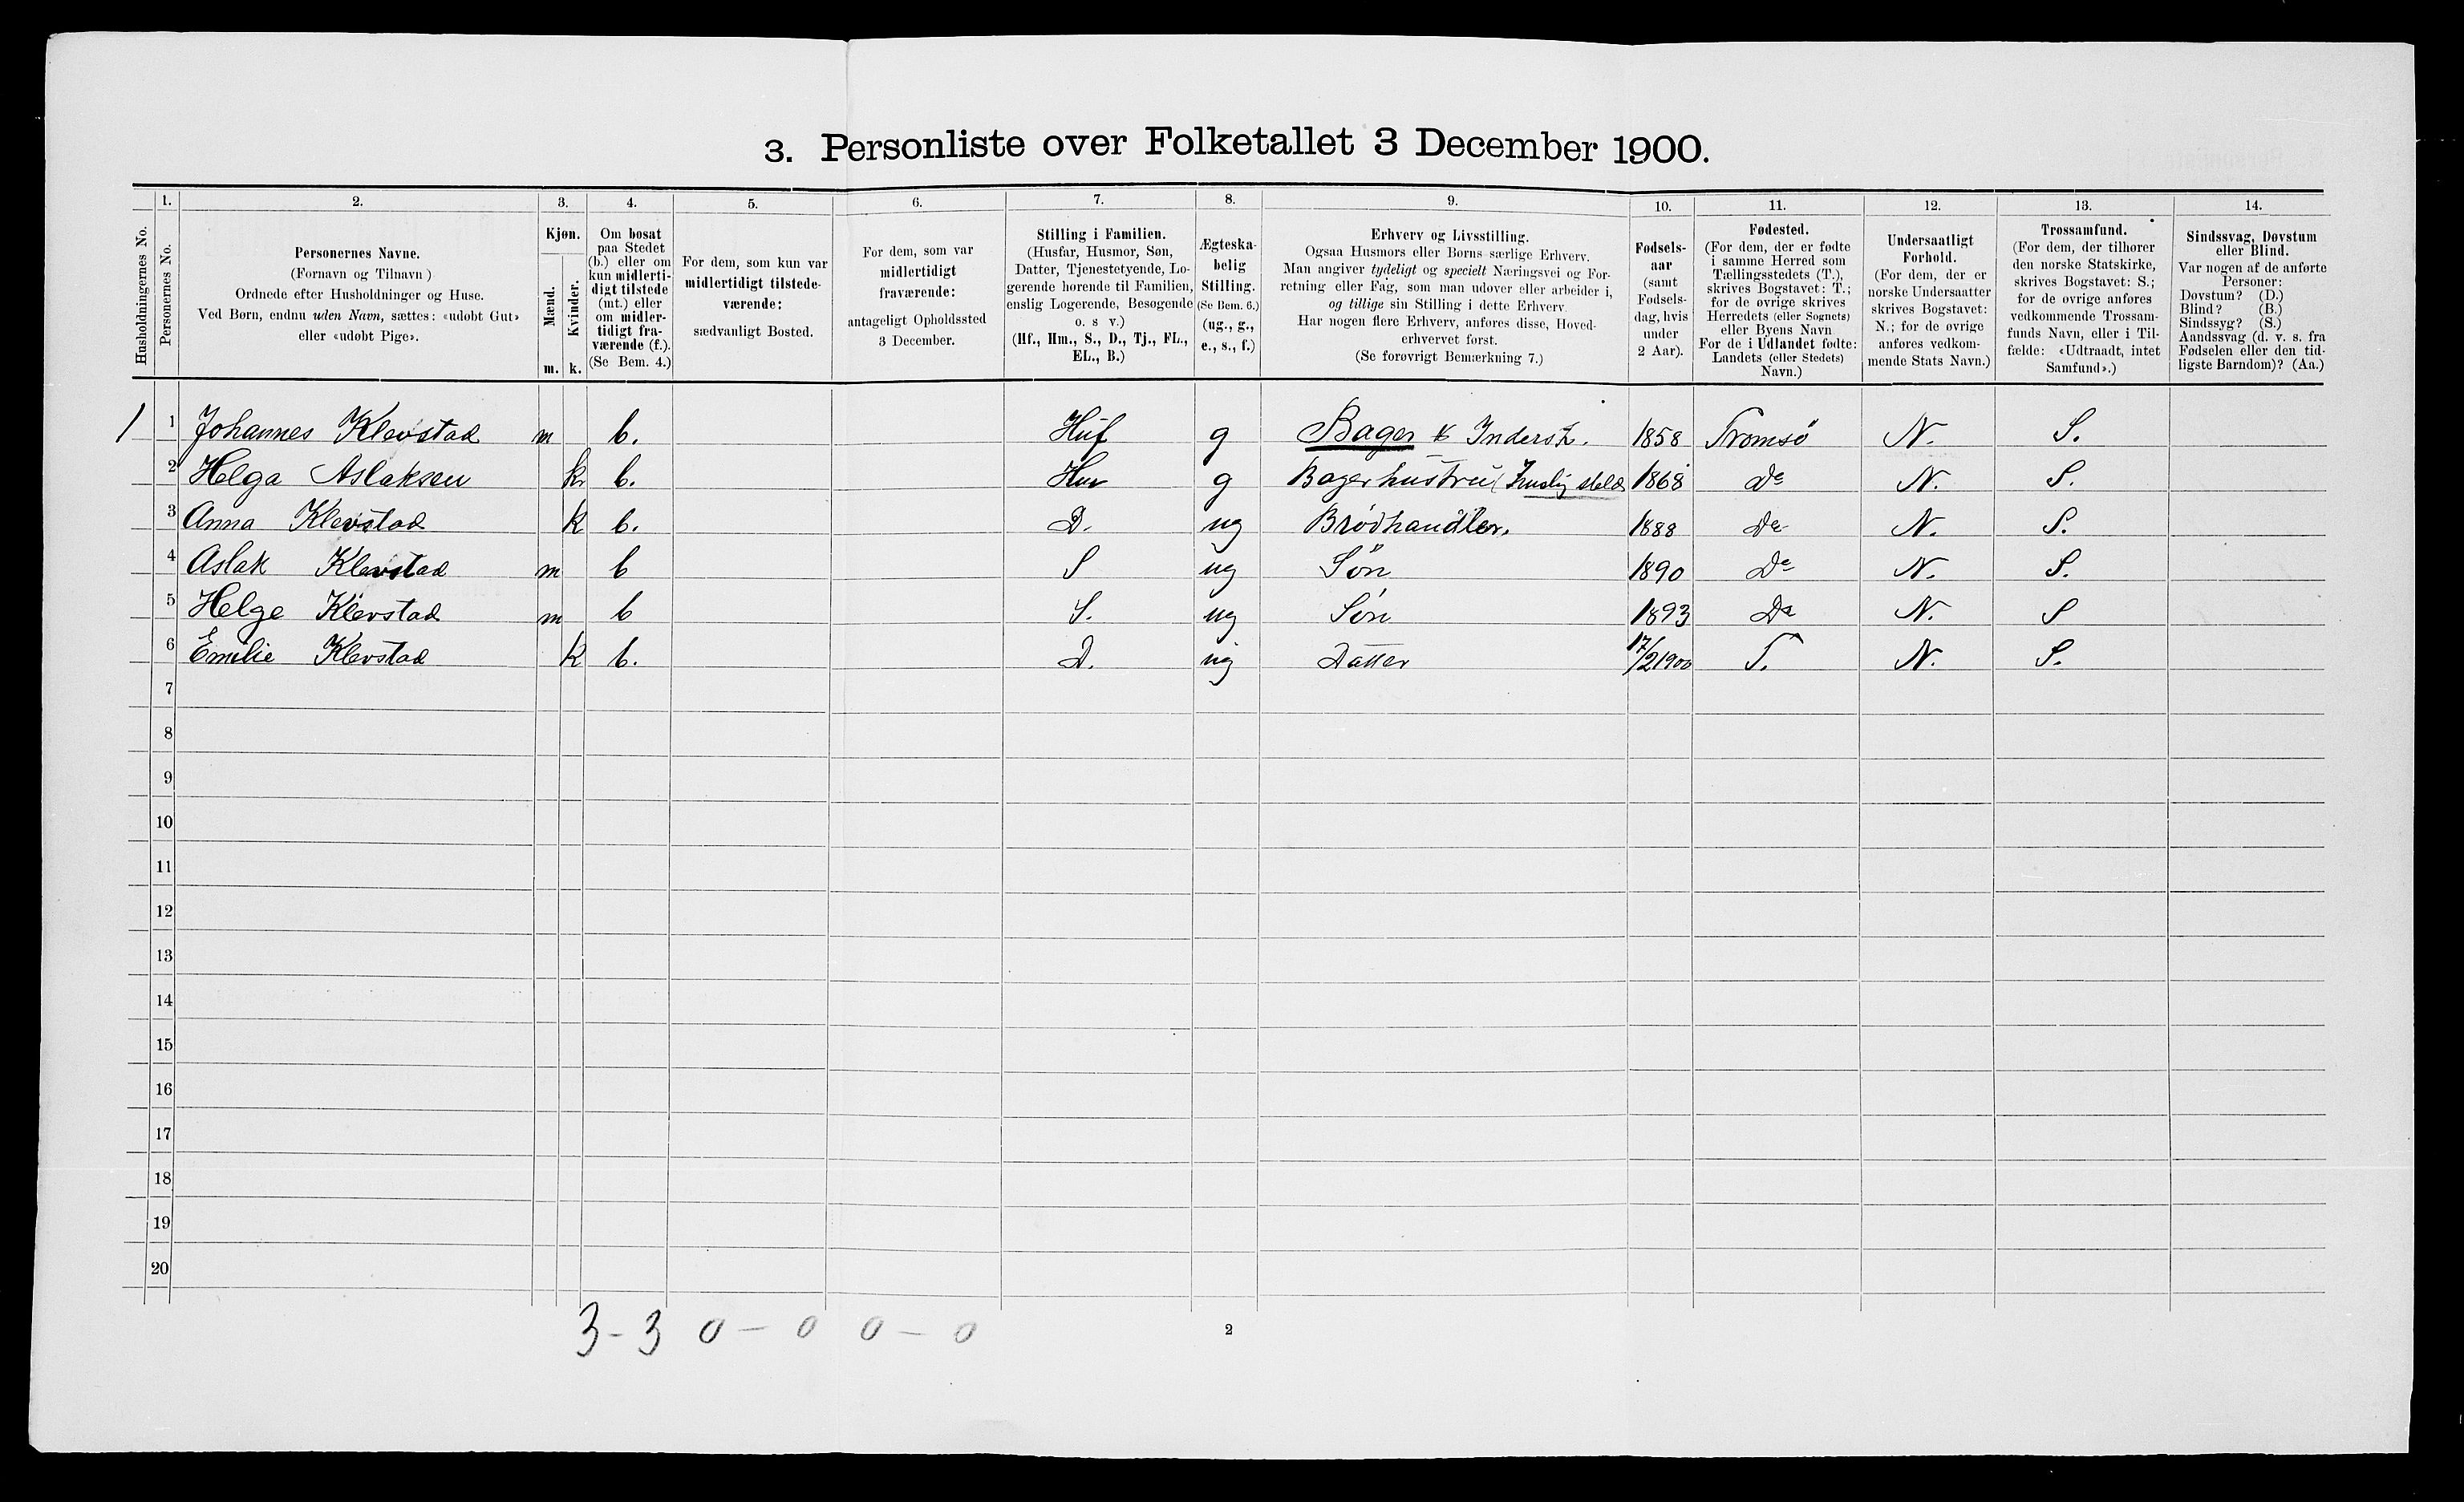 3. Personliste over Folketallet 3 December 1900.
1. 2. 3. 4. 5. 6. 7. 8. 9. 10. 11. 12. 13. 14.
Husholdningernes No.
Personernes No.
Personernes Navne.
(Fornavn og Tilnavn)
Ordnede efter Husholdninger og Huse.
Ved Børn, endnu uden Navn, sættes: «udøbt Gut»
eller «udøbt Pige».
Kjøn.
Mænd.
Kvinder.
m. k.
Om bosat
paa Stedet
(b.) eller om
kun midlerti-
digt tilstede
(mt.) eller
om midler-
tidigt fra-
værende (f.).
(Se Bem. 4.)
For dem, som kun var
midlertidigt tilstede-
værende:
sædvanligt Bosted.
For dem, som var
midlertidigt
fraværende:
antageligt Opholdssted
3 December.
Stilling i Familien.
(Husfar, Husmor, Søn,
Datter, Tjenestetyende, Lo-
gerende hørende til Familien,
enslig Logerende, Besøgende
o. s v.)
(Hf., Hm., S., D., Tj., FL.,
EL., B.)
Ægteska-
belig
Stilling.
(Se Bem. 6.)
(ug., g.,
e., s., f.)
Erhverv og Livsstilling.
Ogsaa Husmors eller Børns særlige Erhverv.
Man angiver tydeligt og specielt Næringsvei og For-
retning eller Fag, som man udøver eller arbeider i,
og tillige sin Stilling i dette Erhverv.
Har nogen flere Erhverv, anføres disse, Hoved-
erhvervet først.
(Se forøvrigt Bemærkning 7.)
Fødsels-
aar
(samt
Fødsels-
dag, hvis
under
2 Aar).
Fødested.
(For dem, der er fødte
i samme Herred som
Tællingsstedets (T.),
skrives Bogstavet: T.;
for de øvrige skrives
Herredets (eller Sognets)
eller Byens Navn
For de i Udlandet fødte:
Landets (eller Stedets)
Navn.)
Undersaatligt
Forhold.
(For dem, der er
norske Undersaatter
skrives Bogstavet:
N.; for de øvrige
anføres vedkom-
mende Stats Navn.)
Trossamfund.
(For dem, der tilhører
den norske Statskirke,
skrives Bogstavet: S.;
for de øvrige anføres
vedkommende Trossam-
funds Navn, eller i Til-
fælde: «Udtraadt, intet
Samfund».)
Sindssvag, Døvstum
eller Blind.
Var nogen af de anførte
Personer:
Døvstum? (D.)
Blind? (B.)
Sindssyg? (S.)
Aandssvag (d. v. s. fra
Fødselen eller den tid-
ligste Barndom)? (Aa.)
1 1 Johannes Klevstad m b. Huf g Bager 1858 Tromsø N. S.
2 Helga Aslaksen k b. Hu g Bagerhustru (Huslig steld 1868 Do N. S.
3 Anna Klevstad k b. D. ug Brødhandler. 1888 Do N. S.
4 Aslak Klevstad m b S ug Søn 1890 Do N. S.
5 Helge Klevstad m b S. ug Søn 1893 Do N. S
6 Emilie Klevstad k b. D. ug Datter 17/2 1900 T. N. S.
7
8
9
10
11
12
13
14
15
16
17
18
19
20
3 - 3 0 - 0 0 - 0
2